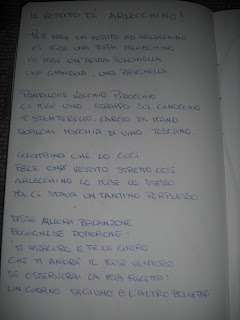 IL VESTITO DI ARLECCHINO!
PER FARE UN VESTITO AD ARLECCHINO
CI MISE UNA TOPPA MENEGHINO
NE MISE UN'ALTRA PULCINELLA
UNA GIANDUIA, UNA BRIGHELLA
PANTALONE VECCHIO PIDOCCHIO
CI MISE UNO STRAPPO SUL GINOCCHIO
E STENTERELLO, LARGO DI MANO
QUALCHE MACCHIA DI VINO TOSCANO.
COLOMBINA CHE LO CUCÌ
FECE UN VESTITO STRETTO COSÌ
ARLECCHINO LO MISE LO STESSO
MA CI STAVA UN TANTINO PERPLESSO
DISSE ALLORA BALANZONE
BOLOGNESE DOTTORONE:
'TI ASSICURO E TE LO GIURO
CHE TI ANDRÀ IL MESE VENTURO
SE OSSERVERAI LA MIA RICETTA:
UN GIORNO DIGIUNO E L'ALTRO BOLLETTA'